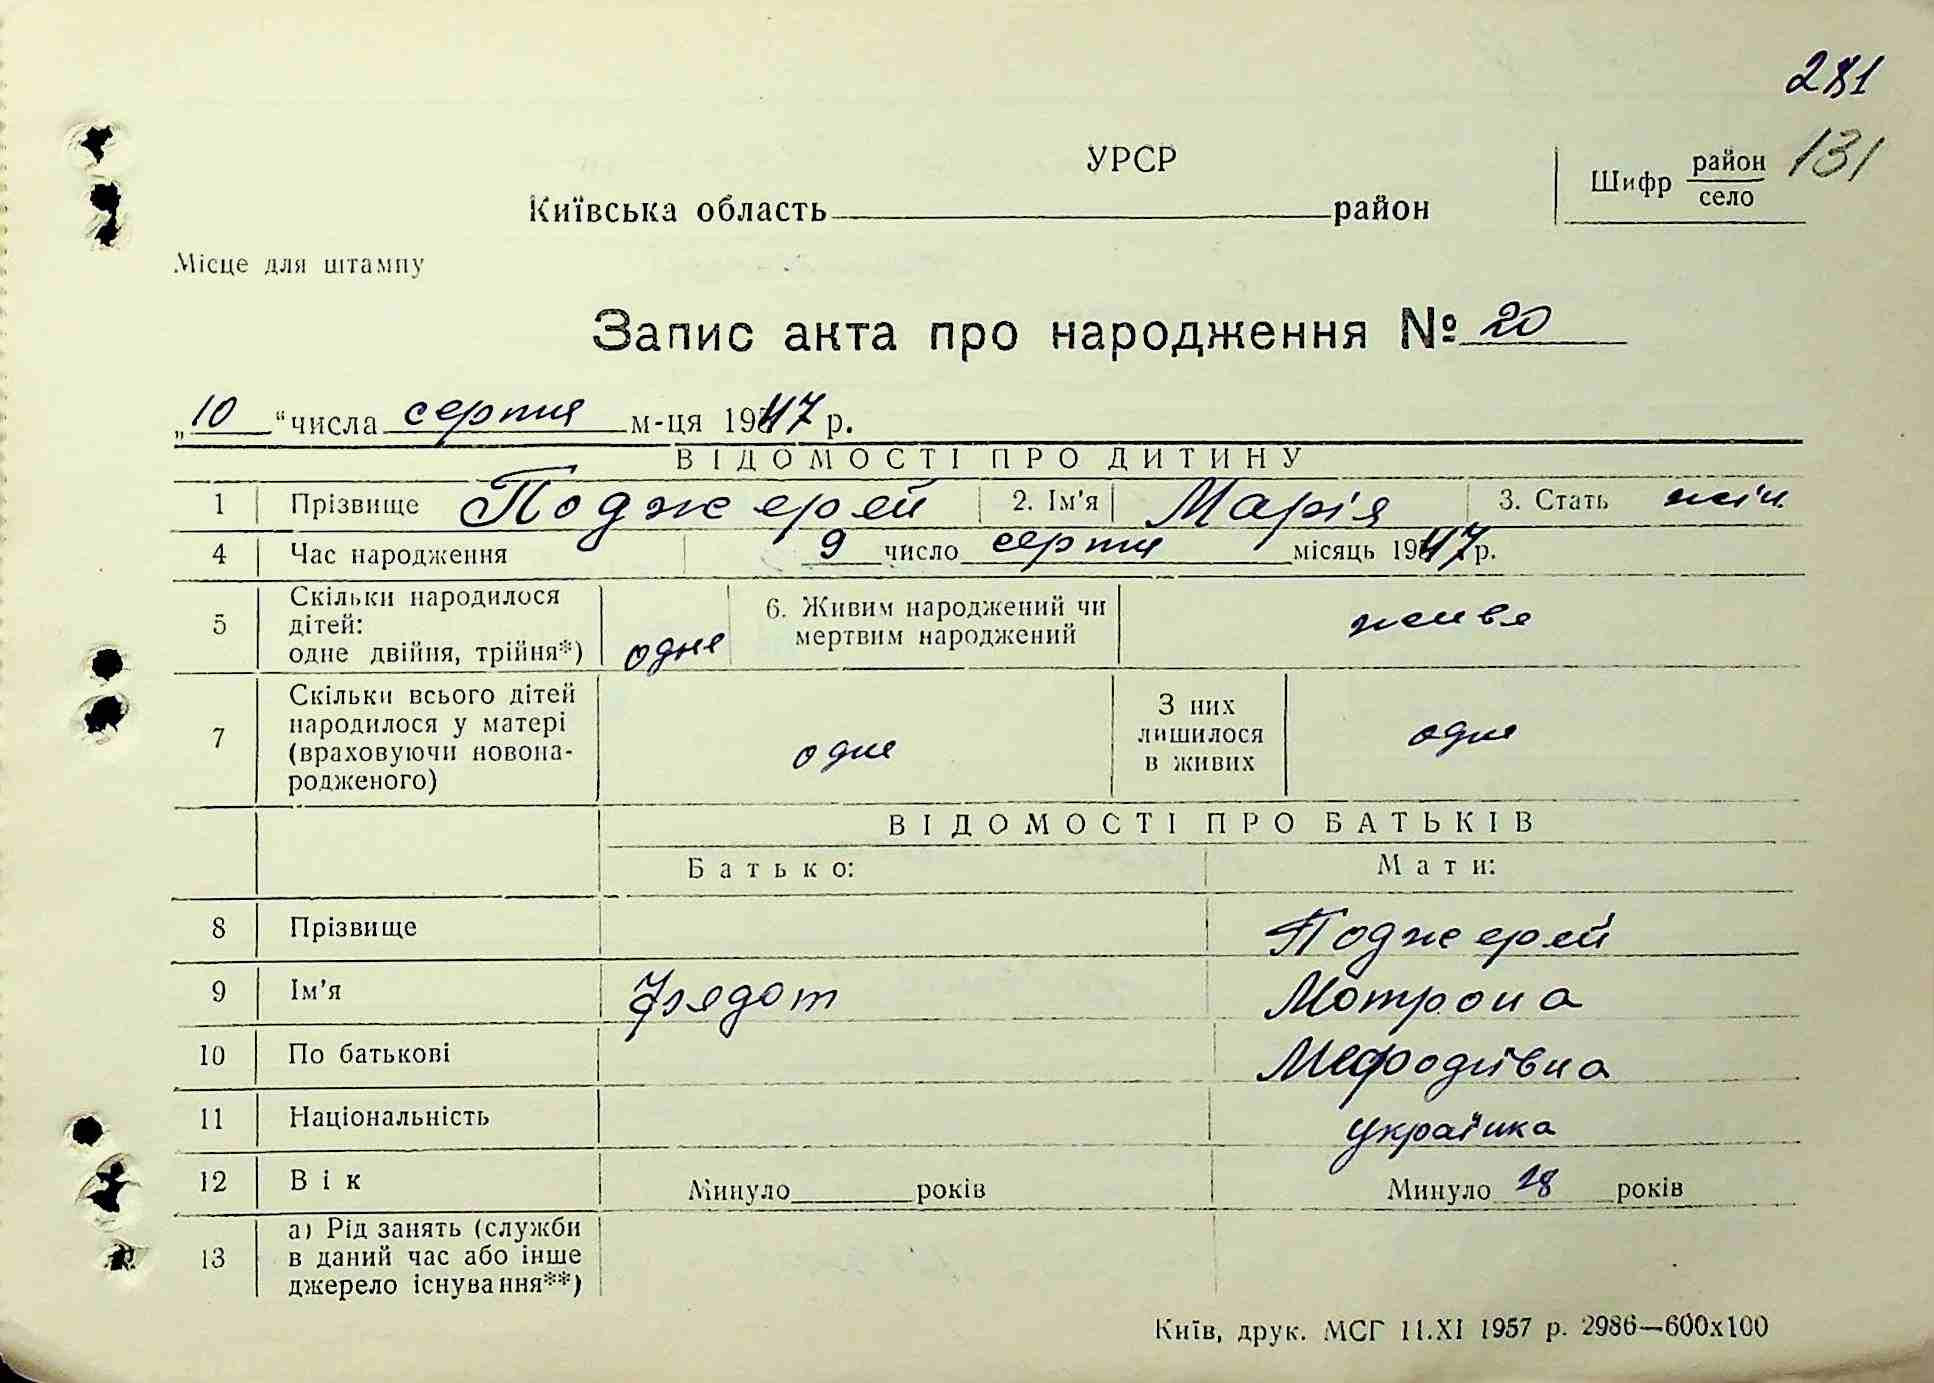 281
УРСР
Шифр район 131
село
Київська область район
Місце для штампу
Запис акта про народження № 20
„10“ числа серпня м-ця 1947 р.
ВІДОМОСТІ ПРО ДИТИНУ
1 Прізвище Поджерей 2. Ім'я Марія 3. Стать жін.
4 Час народження 9 число серпня місяць 1947 р.
5 Скільки народилося дітей: одне двійня, трійня*) одне 6. Живим народжений чи мертвим народжений живе
7 Скільки всього дітей народилося у матері (враховуючи новона-родженого) одне З них лишилося в живих одне
ВІДОМОСТІ ПРО БАТЬКІВ
Батько: Мати:
8 Прізвище Поджерей
9 Ім'я Мотрона
10 По батькові Мефодіївна
11 Національність українка
12 Вік Минуло років Минуло 28 років
13 а) Рід занять (служби в даний час або інше джерело існування**)
Київ, друк. МСГ 11.XI 1957 р. 2986—600x100